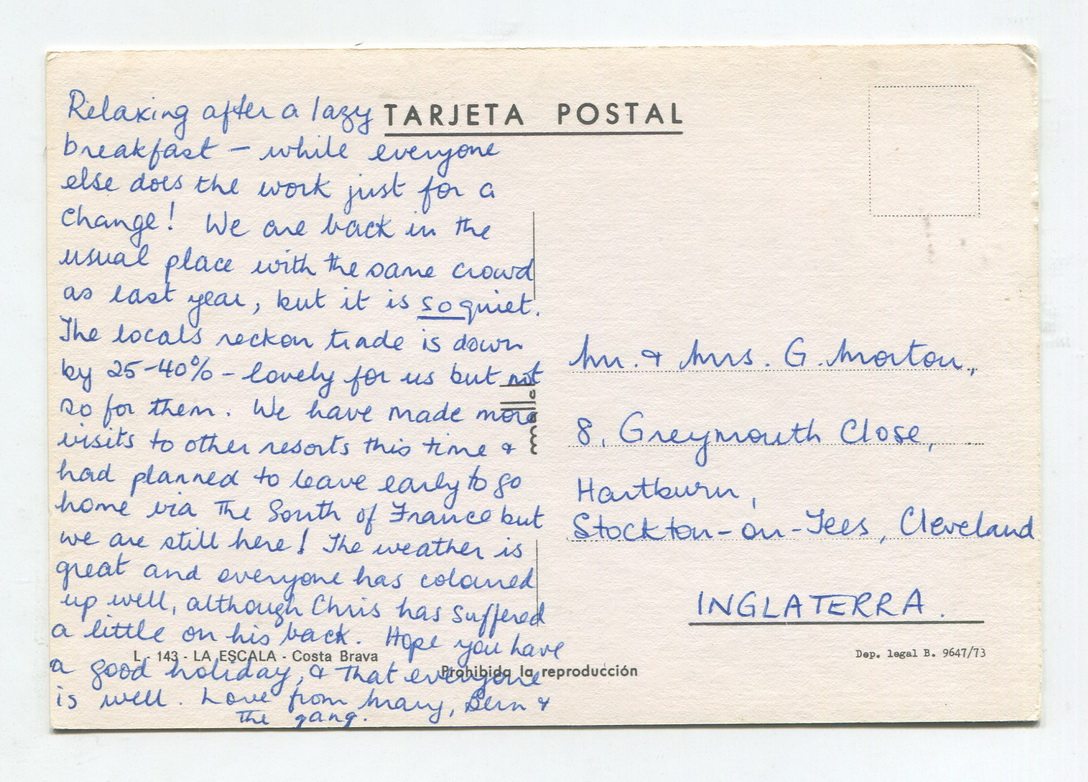 TARJETA POSTAL
Relaxing after a lazy
breakfast – while everyone
else does the work just for a
change! We are back in the
usual place with the same crowd
as last year, but it is so quiet.
The locals reckon trade is down
by 25-40% – lovely for us but not
so for them. We have made more
visits to other resorts this time &
had planned to leave early to go
home via The South of France but
we are still here! The weather is
great and everyone has coloured
up well, although Chris has suffered
a little on his back. Hope you have
a good holiday, & that everyone
is well. Love from Mary, Bern &
The gang.
Mr. & Mrs. G. Morton,
8, Greymouth Close,
Hartburn,
Stockton-on-Tees, Cleveland
INGLATERRA.
L - 143 - LA ESCALA - Costa Brava
Prohibida la reproducción
Dep. legal B. 9647/73